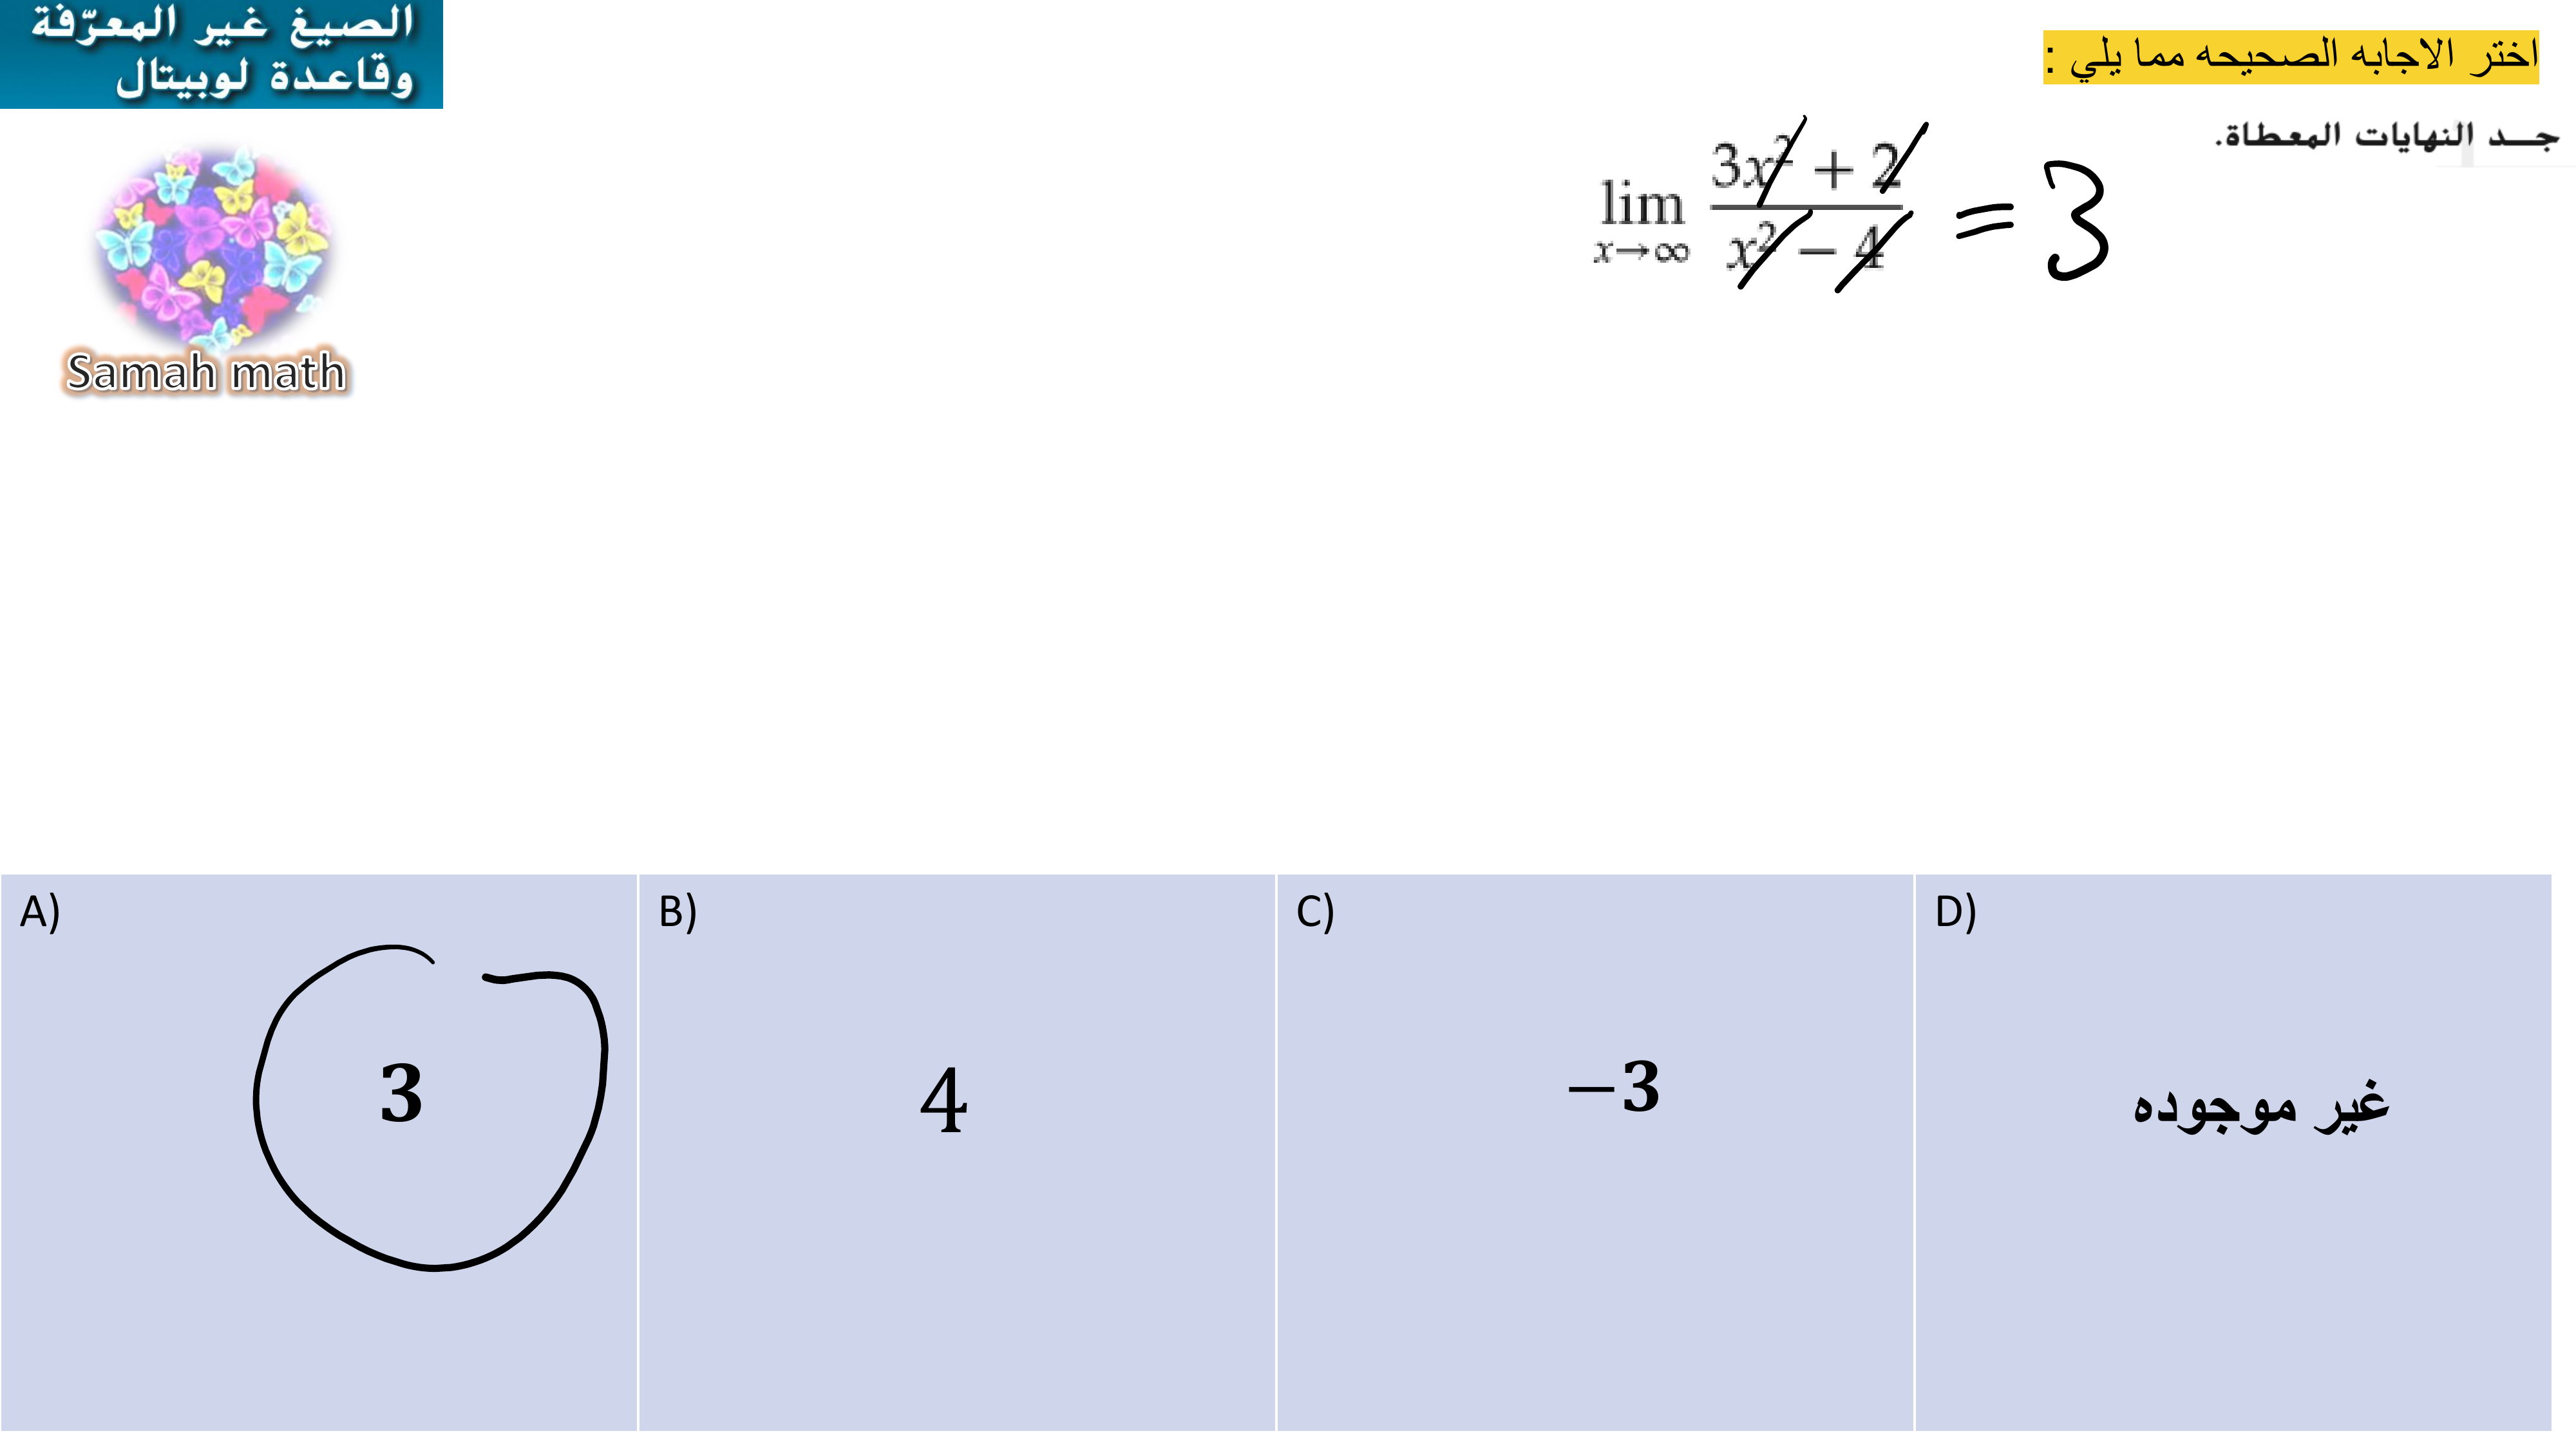 الصيغ غير المعرّفة
وقاعدة لوبيتال
Samah math
اختر الاجابه الصحيحه مما يلي :
جــد النهايات المعطاة.
lim x→∞ (3x² + 2)/(x² − 4) = 3
A) 3
B) 4
C) −3
D) غير موجوده